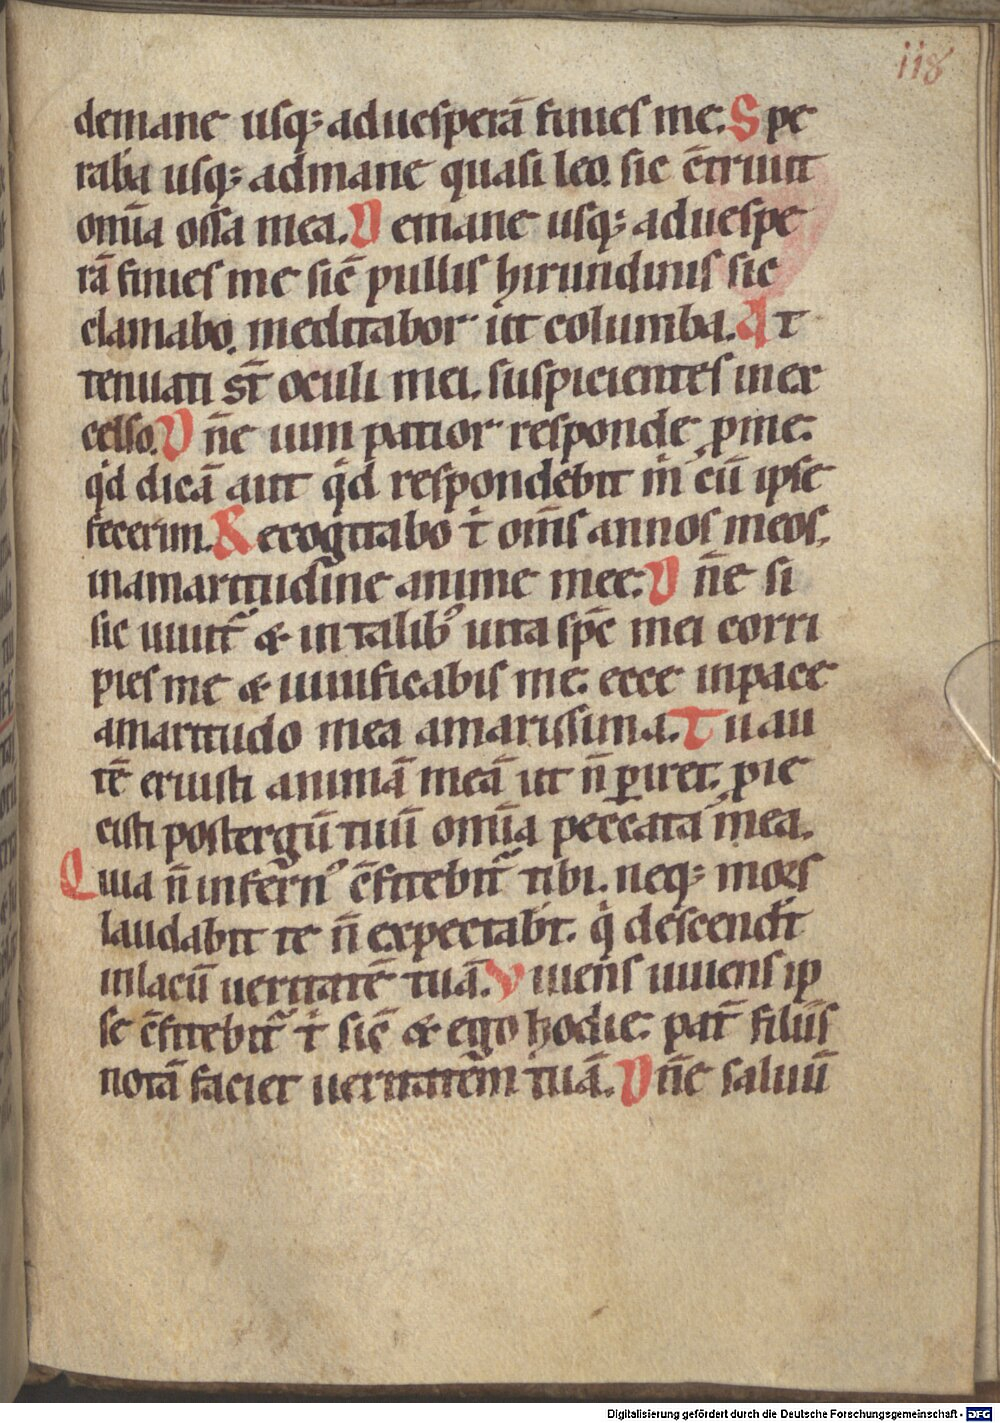 118
demane usq; aduesperā finies me. Spe
raba usq; admane quasi leo. sic c̄triuit
om̄ia ossa mea. Demane usq; aduespe
rā finies me sic̄ pullis hirundinis sic
clamabo. meditabor ut columba. At
tenuati st̄ oculi mei. suspicientes inex
celso. Dn̄e uim patior responde p̱me:
qd dicā aut qd respondebit m̄ cū ipse
fecerim. Recogitabo t om̄s annos meos,
inamaritudine anime mee: Dn̄e si
sic uiuit̄ & in talib᷒ uita sp̄c mei corri
pies me & uiuificabis me. ecce inpace
amaritudo mea amarissima. Tu au
tē eruisti animā meā ut n̄ ꝑiret. p̱ie
cisti postergū tuū om̄ia peccata mea.
Quia n̄ infern᷒ c̄fitebit̄ tibi. neq; mors
laudabit te n̄ expectabt̄. q descendt̄
inlacū ueritatē tuā. Viuens uiuens ip
se c̄fitebit̄ t sic̄ & ego hodie: pat̄ filiis
notā faciet ueritatēm tuā. Dn̄e saluū
Digitalisierung gefördert durch die Deutsche Forschungsgemeinschaft - DFG